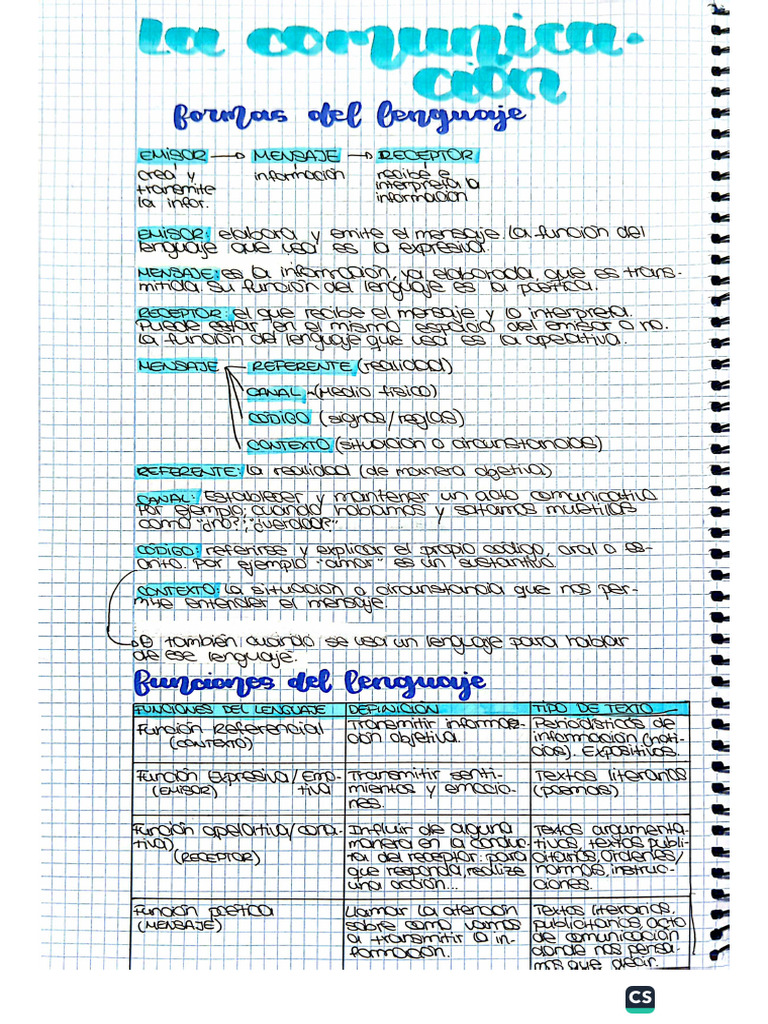 La comunica-
ción
formas del lenguaje
EMISOR → MENSAJE → RECEPTOR
crea y
transmite
la infor.
información
recibe e
interpreta la
información
EMISOR: elabora y emite el mensaje. La función del
lenguaje que usa es la expresiva.
MENSAJE: es la información, ya elaborada, que es trans-
mitida. Su función del lenguaje es la poética.
RECEPTOR: el que recibe el mensaje y lo interpreta.
Puede estar en el mismo espacio del emisor o no.
La función del lenguaje que usa es la apelativa.
MENSAJE
REFERENTE (realidad)
CANAL (Medio físico)
CÓDIGO (signos/reglas)
CONTEXTO (situación o circunstancias)
REFERENTE: La realidad (de manera objetiva)
CANAL: Establecer y mantener un acto comunicativo
Por ejemplo; cuando hablamos y soltamos muletillas
como "¿no?", "¿verdad?"
CÓDIGO: referirse y explicar el propio código, oral o es-
crito. Por ejemplo "amor" es un sustantivo.
CONTEXTO: La situación o circunstancia que nos per-
mite entender el mensaje.
O también cuando se usa un lenguaje para hablar
de ese lenguaje.
funciones del lenguaje
FUNCIONES DEL LENGUAJE
DEFINICIÓN
TIPO DE TEXTO
Función Referencial
(CONTEXTO)
Transmitir informa-
ción objetiva.
Periodísticos de
información (noti-
cias). Expositivos.
Función Expresiva/Emo-
tiva
(EMISOR)
Transmitir senti-
mientos y emocio-
nes.
Textos literarios
(poemas)
Función apelativa/cona-
tiva)
(RECEPTOR)
Influir de alguna
manera en la conduc-
ta del receptor: para
que responda, realize
una acción...
Textos argumenta-
tivos, textos publi-
citarios, órdenes/
normas, instruc-
ciones.
Función poética
(MENSAJE)
Llamar la atención
sobre como vamos
a transmitir la in-
formación.
Textos literarios,
publicitarios, acto
de comunicación
donde nos pensa-
mos que decir.
CS